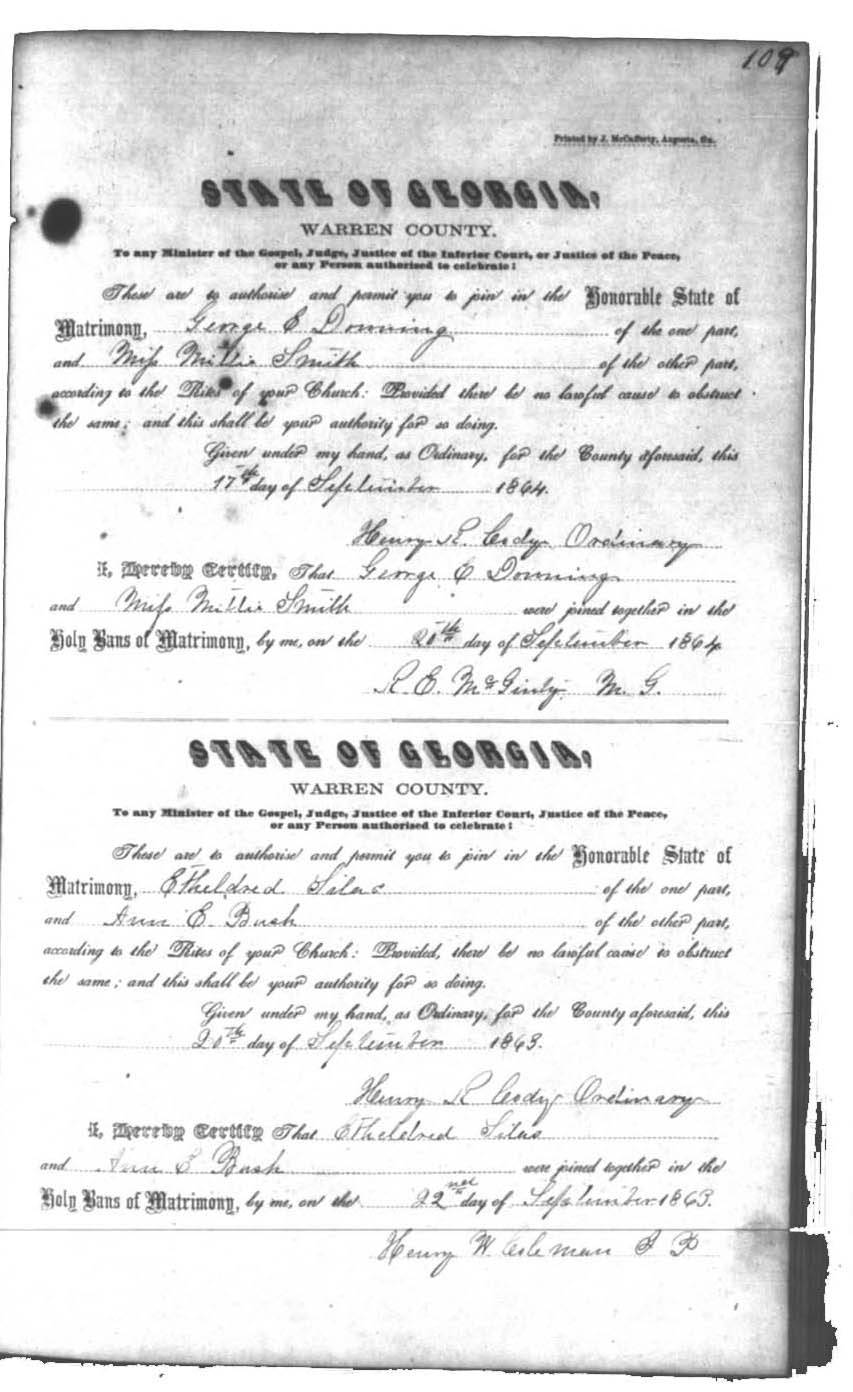 109
Printed by J. McCafferty, Augusta, Ga.
STATE OF GEORGIA,
WARREN COUNTY.
To any Minister of the Gospel, Judge, Justice of the Inferior Court, or Justice of the Peace,
or any Person authorised to celebrate:
These are to authorise and permit you to join in the Honorable State of
Matrimony, George E Downing of the one part,
and Miss Millie Smith of the other part,
according to the Rites of your Church: Provided there be no lawful cause to obstruct
the same; and this shall be your authority for so doing.
Given under my hand, as Ordinary, for the County aforesaid, this
17th day of September 1864.
Henry R. Cody Ordinary
I, Hereby Certify, That George E Downing
and Miss Millie Smith were joined together in the
Holy Bans of Matrimony, by me, on the 20th day of September 1864
R. E. McGinty M. G.
STATE OF GEORGIA,
WARREN COUNTY.
To any Minister of the Gospel, Judge, Justice of the Inferior Court, Justice of the Peace,
or any Person authorised to celebrate:
These are to authorise and permit you to join in the Honorable State of
Matrimony, Etheldred Silas of the one part,
and Ann E. Bush of the other part,
according to the Rites of your Church: Provided, there be no lawful cause to obstruct
the same; and this shall be your authority for so doing.
Given under my hand, as Ordinary, for the County aforesaid, this
20th day of September 1863.
Henry R Cody Ordinary
I, Hereby Certify That Etheldred Silas
and Ann E Bush were joined together in the
Holy Bans of Matrimony, by me, on the 22nd day of September 1863.
Henry W Coleman J P